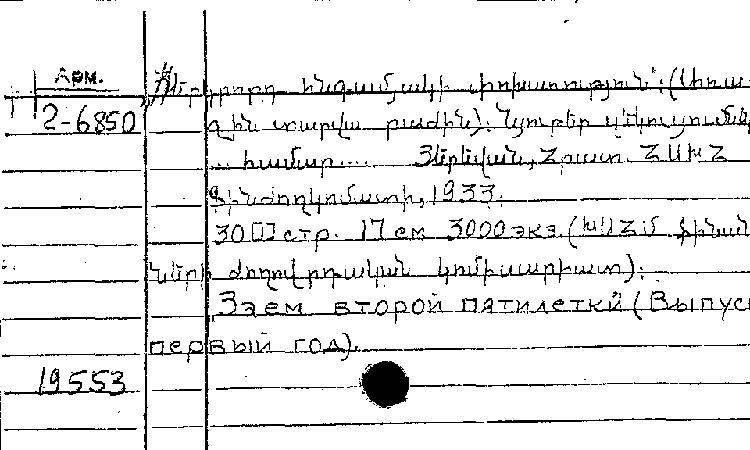 Арм.
2-6850
"Երկրորդ հնգամյակի փոխառություն": (Առա-
ջին տարվա բաժին): Նյութեր
... համար... Յերեվան, Հրատ. ՀՍԽՀ
Ֆինժողկոմատի, 1933.
30 [] стр. 17 см 3000 экз. (ԽՍՀՄ ֆինանս-
ների ժողովրդական կոմիսարիատ):
Заем второй пятилетки (Выпуск
первый год).
19553